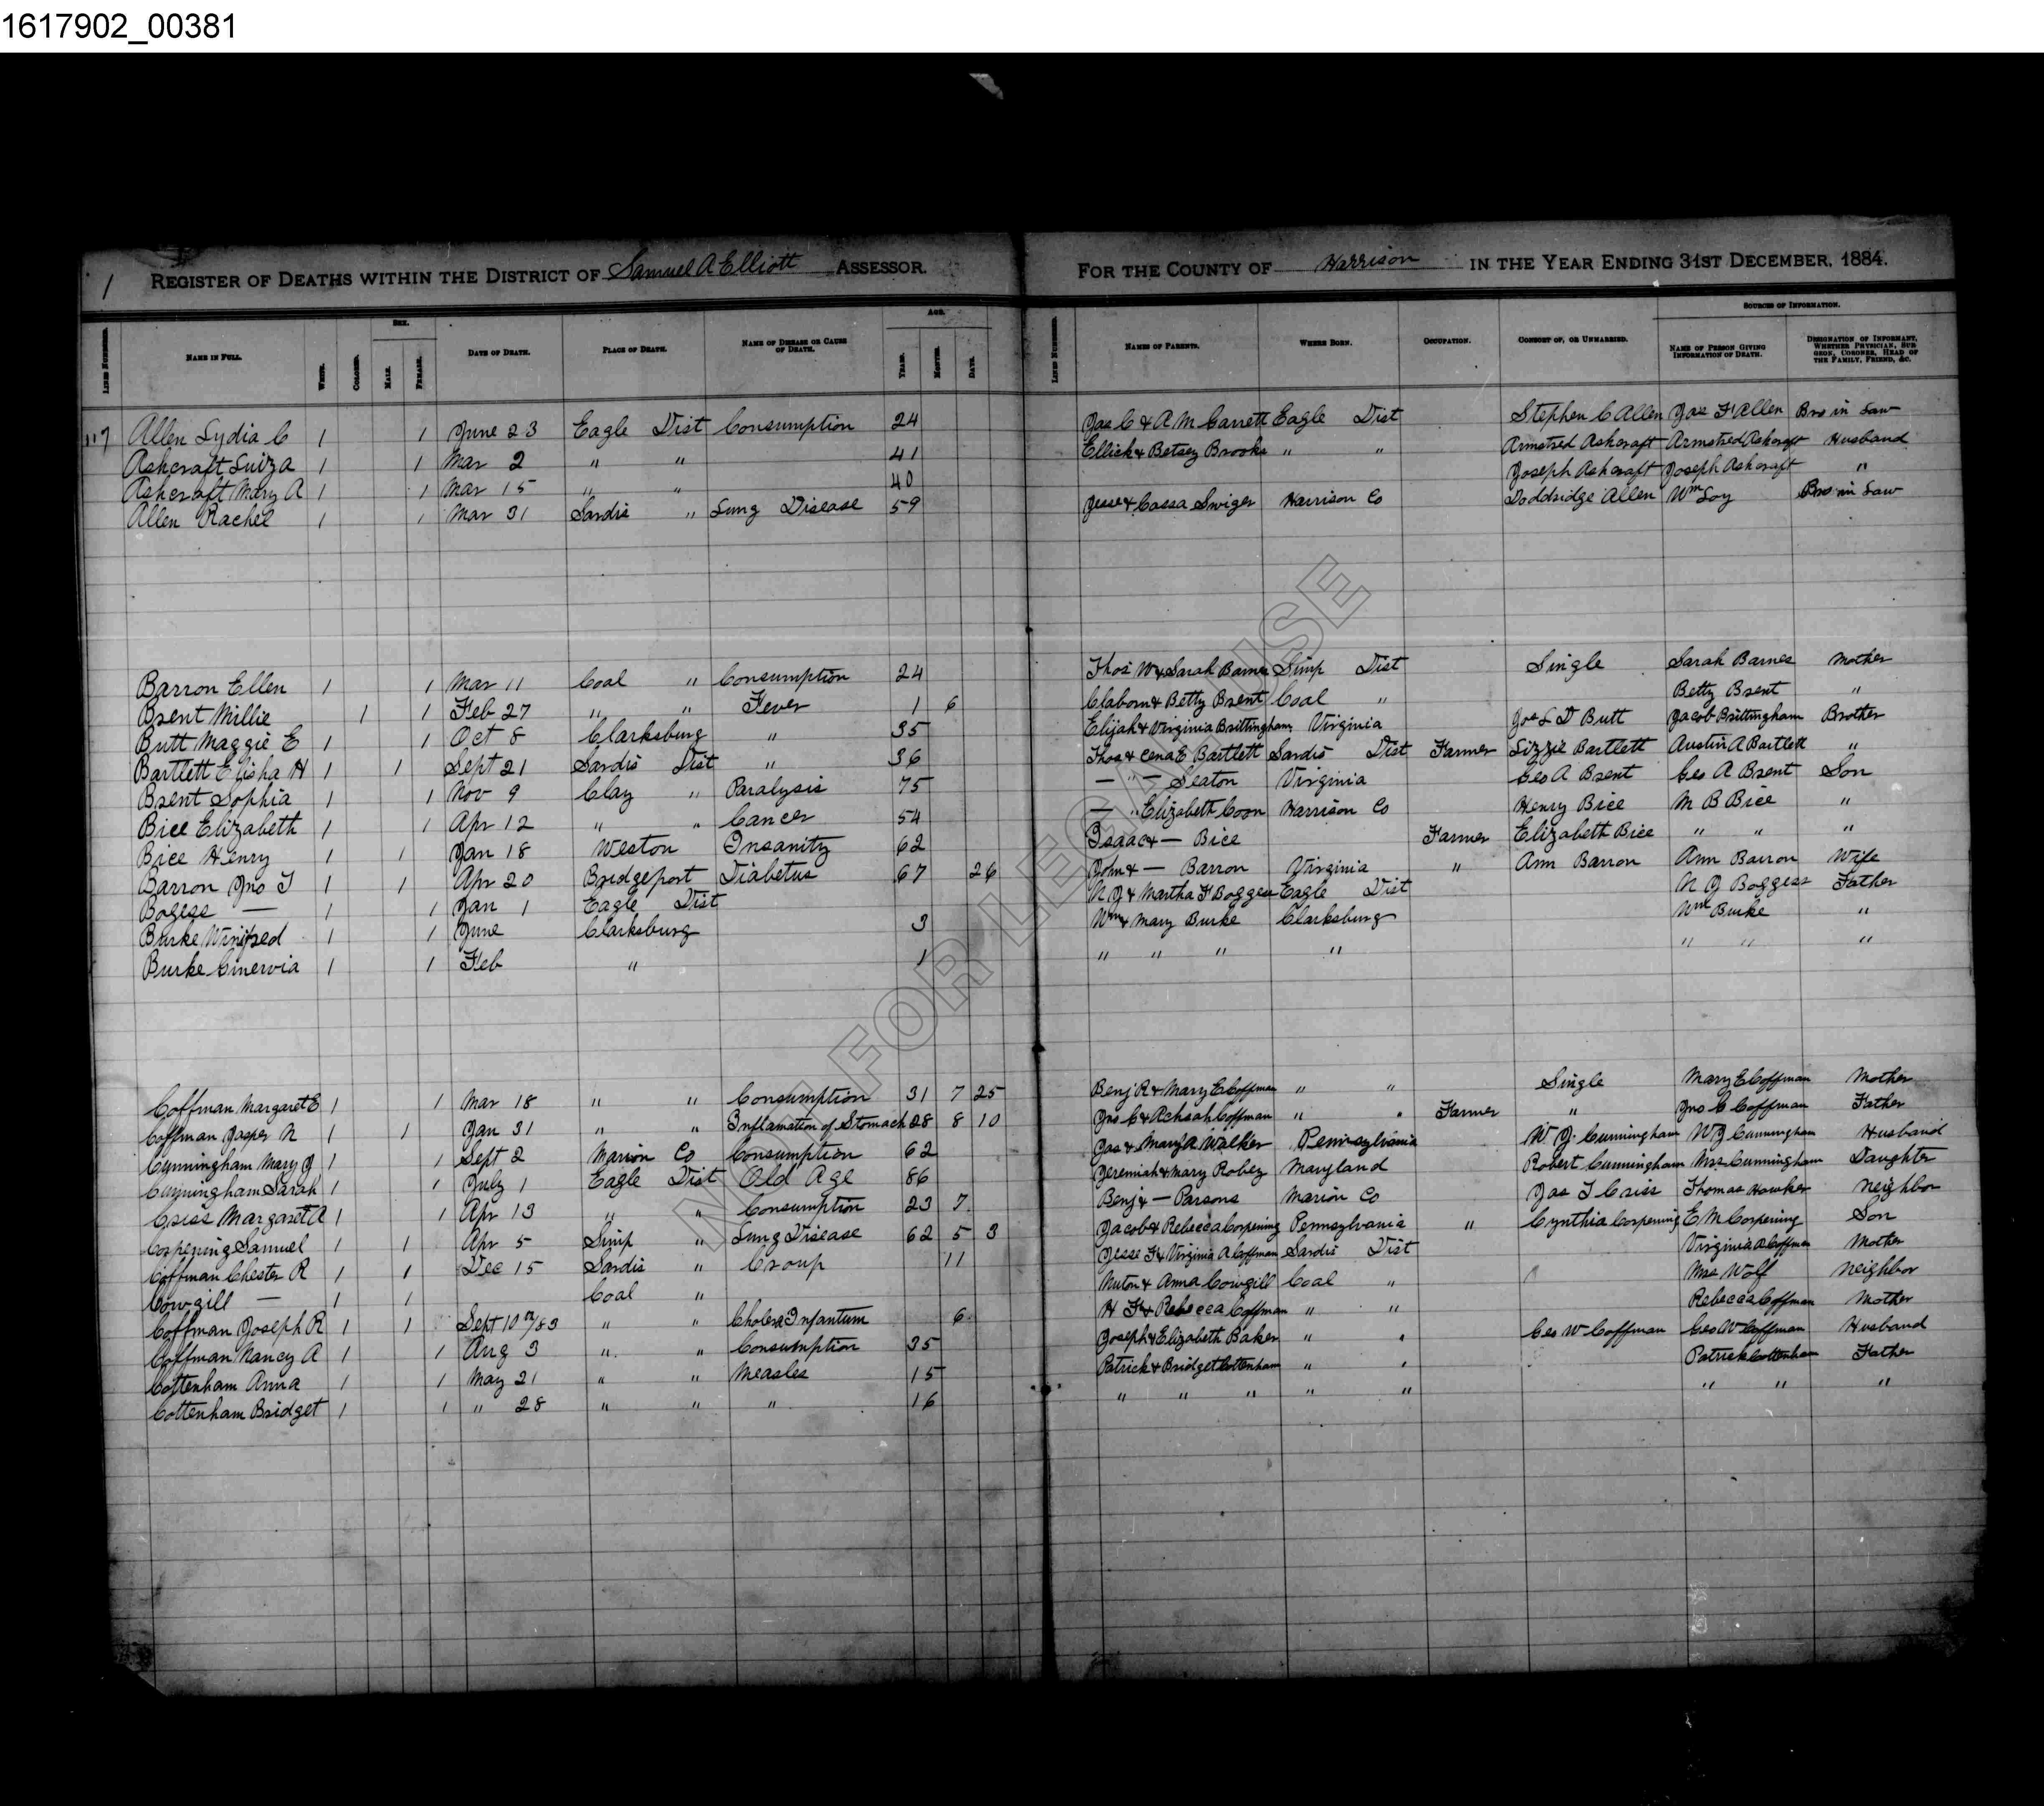 1617902_00381
1 REGISTER OF DEATHS WITHIN THE DISTRICT OF Samuel A Elliott ASSESSOR. FOR THE COUNTY OF Harrison IN THE YEAR ENDING 31ST DECEMBER, 1884.
SEX. AGE. SOURCES OF INFORMATION.
LINES NUMBERED. NAME IN FULL. WHITE. COLORED. MALE. FEMALE. DATE OF DEATH. PLACE OF DEATH. NAME OF DISEASE OR CAUSE OF DEATH. YEARS. MONTHS. DAYS. LINES NUMBERED. NAMES OF PARENTS. WHERE BORN. OCCUPATION. CONSORT OF, OR UNMARRIED. NAME OF PERSON GIVING INFORMATION OF DEATH. DESIGNATION OF INFORMANT, WHETHER PHYSICIAN, SURGEON, CORONER, HEAD OF THE FAMILY, FRIEND, &C.
117 Allen Lydia C 1 1 June 23 Eagle Dist Consumption 24 Jas C & A. M. Garrett Eagle Dist Stephen C Allen Jas F Allen Bro in Law
Ashcraft Luiza 1 1 Mar 2 " " 41 Ellick & Betsey Brooks " " Armsted Ashcraft Armsted Ashcraft Husband
Ashcraft Mary A 1 1 Mar 15 " " 40 Joseph Ashcraft Joseph Ashcraft "
Allen Rachel 1 1 Mar 31 Sardis " Lung Disease 59 Jesse & Cassa Swiger Harrison Co Doddridge Allen Wm Loy Bro in Law
Barron Ellen 1 1 Mar 11 Coal " Consumption 24 Thos W & Sarah Barnes Simp Dist Single Sarah Barnes Mother
Brent Millie 1 1 Feb 27 " " Fever 1 6 Claborn & Betty Brent Coal " Betty Brent "
Butt Maggie E 1 1 Oct 8 Clarksburg " 35 Elijah & Virginia Brittingham Virginia Jos L D Butt Jacob Brittingham Brother
Bartlett Elisha H 1 1 Sept 21 Sardis Dist " 36 Thos & Cena E Bartlett Sardis Dist Farmer Lizzie Bartlett Austin A Bartlett "
Brent Sophia 1 1 Nov 9 Clay " Paralysis 75 — " — Seaton Virginia Geo A Brent Geo A Brent Son
Bice Elizabeth 1 1 Apr 12 " " Cancer 54 — " Elizabeth Coon Harrison Co Henry Bice M B Bice "
Bice Henry 1 1 Jan 18 Weston Insanity 62 Isaac & — Bice Farmer Elizabeth Bice " " "
Barron Jno T 1 1 Apr 20 Bridgeport Diabetus 67 26 John & — Barron Virginia " Ann Barron Ann Barron Wife
Bogess — 1 1 Jan 1 Eagle Dist N J & Martha F Boggess Eagle Dist N J Boggess Father
Burke Winifred 1 1 June Clarksburg 3 Wm & Mary Burke Clarksburg Wm Burke "
Burke Cinervia 1 1 Feb " 1 " " " " " " "
Coffman Margaret E 1 1 Mar 18 " " Consumption 31 7 25 Benj R & Mary E Coffman " " Single Mary E Coffman Mother
Coffman Jasper N 1 1 Jan 31 " " Inflamation of Stomach 28 8 10 Jno C & Achsah Coffman " " Farmer " Jno C Coffman Father
Cunningham Mary J 1 1 Sept 2 Marion Co Consumption 62 Jas & Mary A Walker Pennsylvania W J. Cunningham W J Cunningham Husband
Cunningham Sarah 1 1 July 1 Eagle Dist Old Age 86 Jeremiah & Mary Robey Maryland Robert Cunningham Mrs Cunningham Daughter
Criss Margaret A 1 1 Apr 13 " " Consumption 23 7 Benj & — Parsons Marion Co Jas T Criss Thomas Hawker Neighbor
Corpening Samuel 1 1 Apr 5 Simp " Lung Disease 62 5 3 Jacob & Rebecca Corpening Pennsylvania " Cynthia Corpening E M Corpening Son
Coffman Chester R 1 1 Dec 15 Sardis " Croup 11 Jesse F & Virginia A Coffman Sardis Dist Virginia A Coffman Mother
Cowgill — 1 1 Coal " Nuton & Anna Cowgill Coal " Mrs Wolf Neighbor
Coffman Joseph R 1 1 Sept 10 /83 " " Cholera Infantum 6 H F & Rebecca Coffman " " Rebecca Coffman Mother
Coffman Nancy A 1 1 Aug 3 " " Consumption 35 Joseph & Elizabeth Baker " " Geo W Coffman Geo W Coffman Husband
Cottenham Anna 1 1 May 21 " " Measles 15 Patrick & Bridget Cottenham " " Patrick Cottenham Father
Cottenham Bridget 1 1 " 28 " " " 16 " " " " " " " "
NOT FOR LEGAL USE